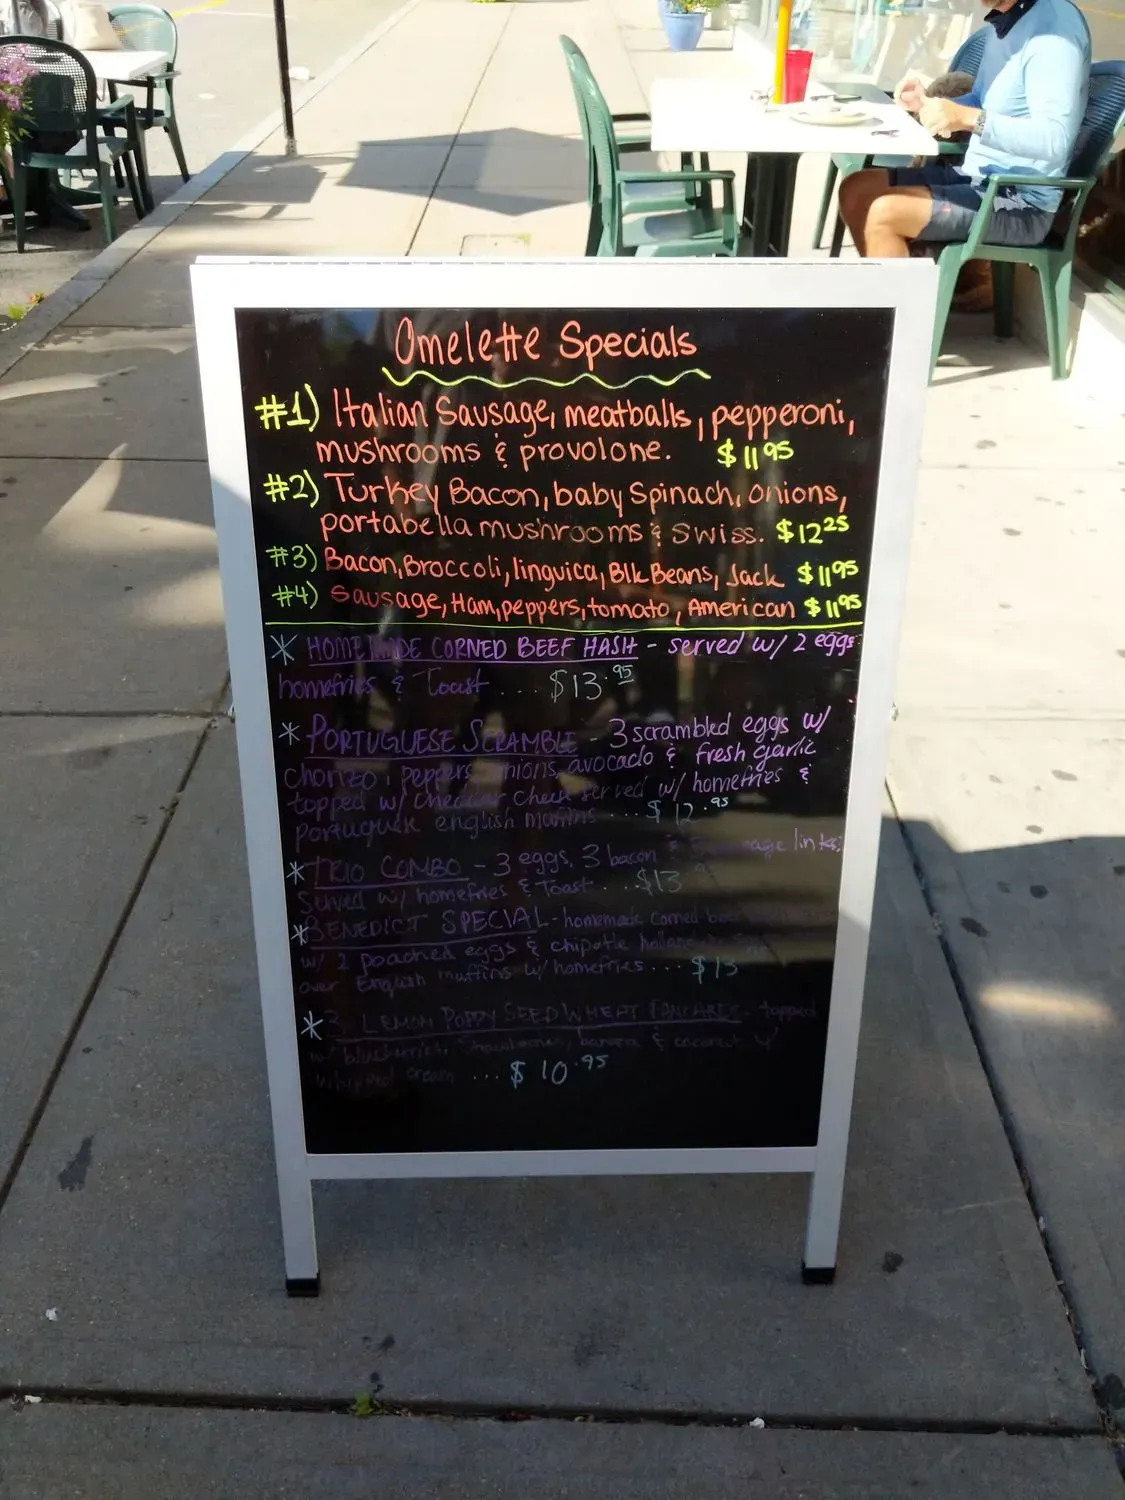 Omelette Specials
#1) Italian Sausage, meatballs, pepperoni,
mushrooms & provolone. $11 95
#2) Turkey Bacon, baby Spinach, onions,
portabella mushrooms & Swiss. $12 25
#3) Bacon, Broccoli, linguica, Blk Beans, Jack $11 95
#4) Sausage, Ham, peppers, tomato, American $11 95
* HOMEMADE CORNED BEEF HASH - served w/ 2 eggs
homefries & Toast ... $13.95
* PORTUGUESE SCRAMBLE - 3 scrambled eggs w/
chorizo, peppers, onions, avocado & fresh garlic
topped w/ cheddar served w/ homefries &
english muffins ... $12.95
* TRIO COMBO - 3 eggs, 3 bacon & links
Served w/ homefries & Toast ... $13
* BENEDICT SPECIAL - homemade corned beef
w/ 2 poached eggs & chipotle
over English muffins w/ homefries ... $13
* 3 LEMON POPPY SEED WHEAT PANCAKES - topped
w/ blueberries, banana & coconut w/
whipped cream ... $10.95